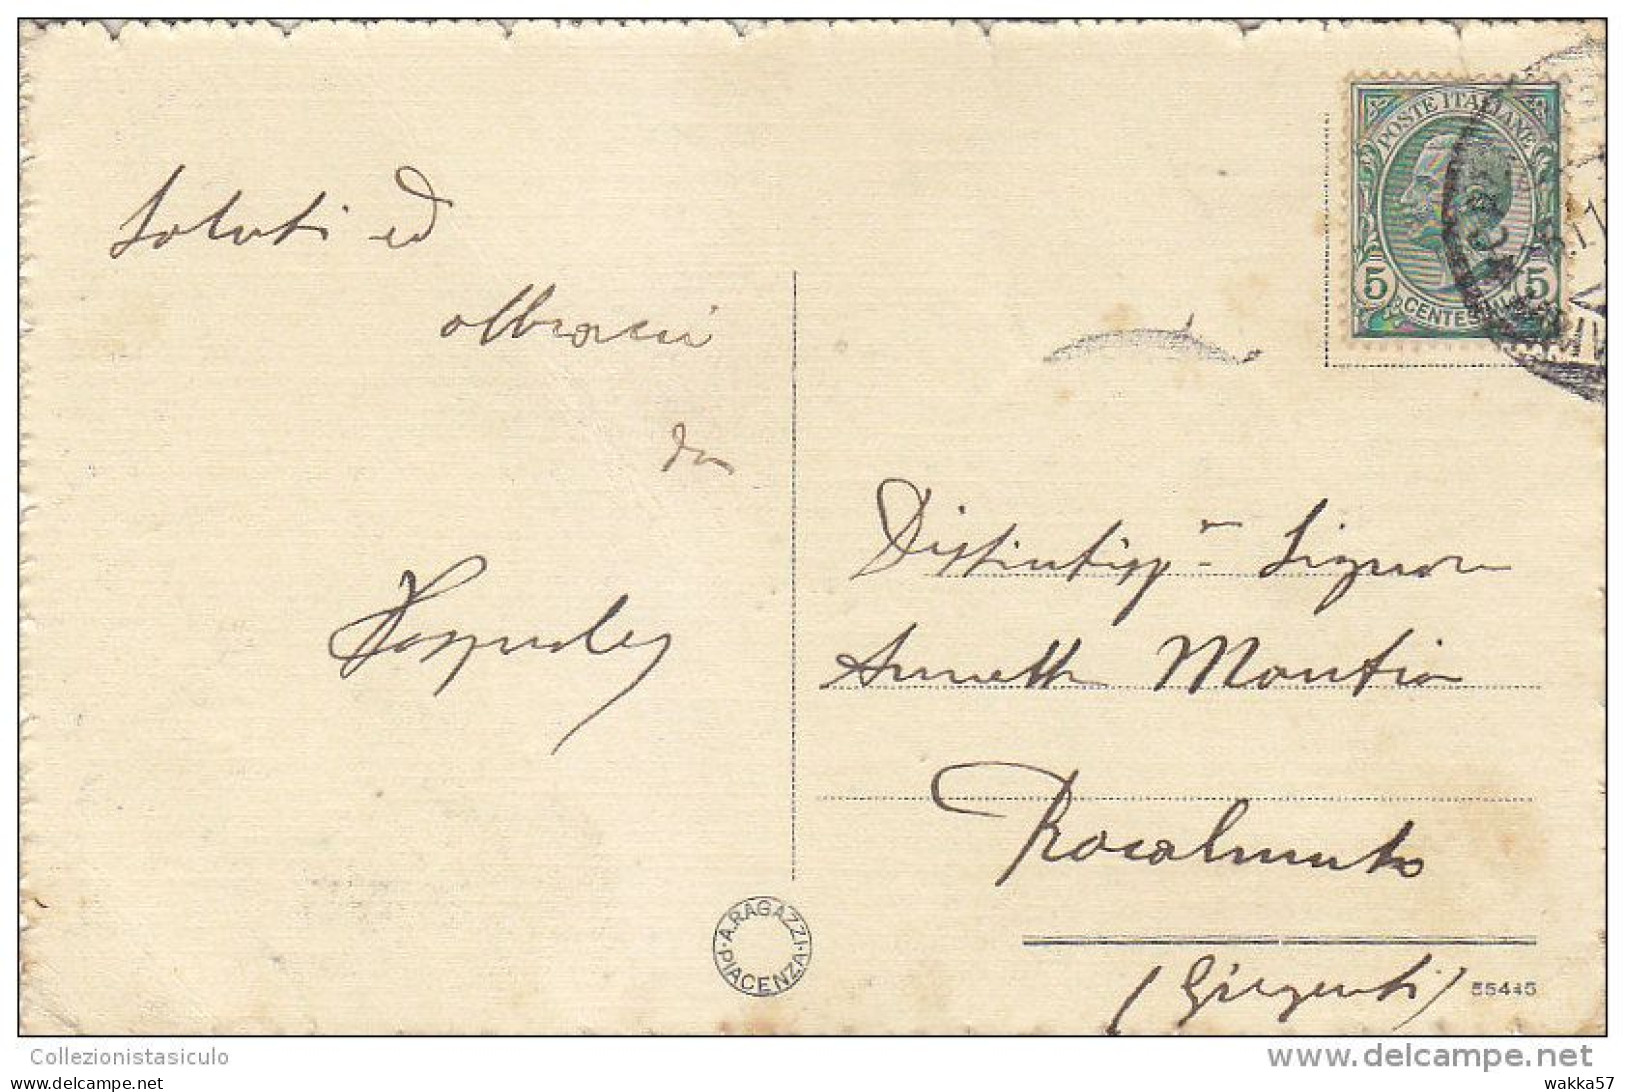 Saluti ed
abbracci
da
POSTE ITALIANE
5 CENTESIMI 5
Distintiss.ma Signora
Montia
Racalmuto
(Girgenti)
A. RAGAZZI · PIACENZA ·
55445
Collezionistasiculo
www.delcampe.net
wakka57